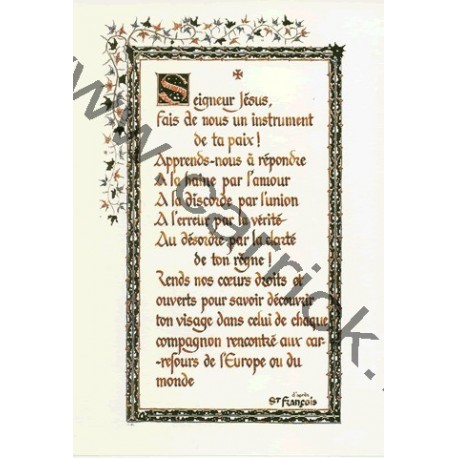 Seigneur Jésus,
fais de nous un instrument
de ta paix !
Apprends-nous à répondre
A la haine par l'amour
A la discorde par l'union
A l'erreur par la vérité
Au désordre par la clarté
de ton règne !
Rends nos cœurs droits et
ouverts pour savoir découvrir
ton visage dans celui de chaque
compagnon rencontré aux car-
refours de l'Europe ou du
monde
d'après
St François
www.carrick.